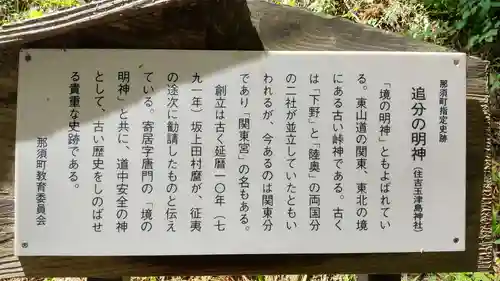 那須町指定史跡
追分の明神(住吉玉津島神社)
「境の明神」ともよばれてい
る。東山道の関東、東北の境
にある古い峠神である。古く
は「下野」と「陸奥」の両国分
の二社が並立していたともい
われるが、今あるのは関東分
であり「関東宮」の名もある。
創立は古く延暦一〇年(七
九一年)坂上田村麿が、征夷
の途次に勧請したものと伝え
ている。寄居字唐門の「境の
明神」と共に、道中安全の神
として、古い歴史をしのばせ
る貴重な史跡である。
那須町教育委員会